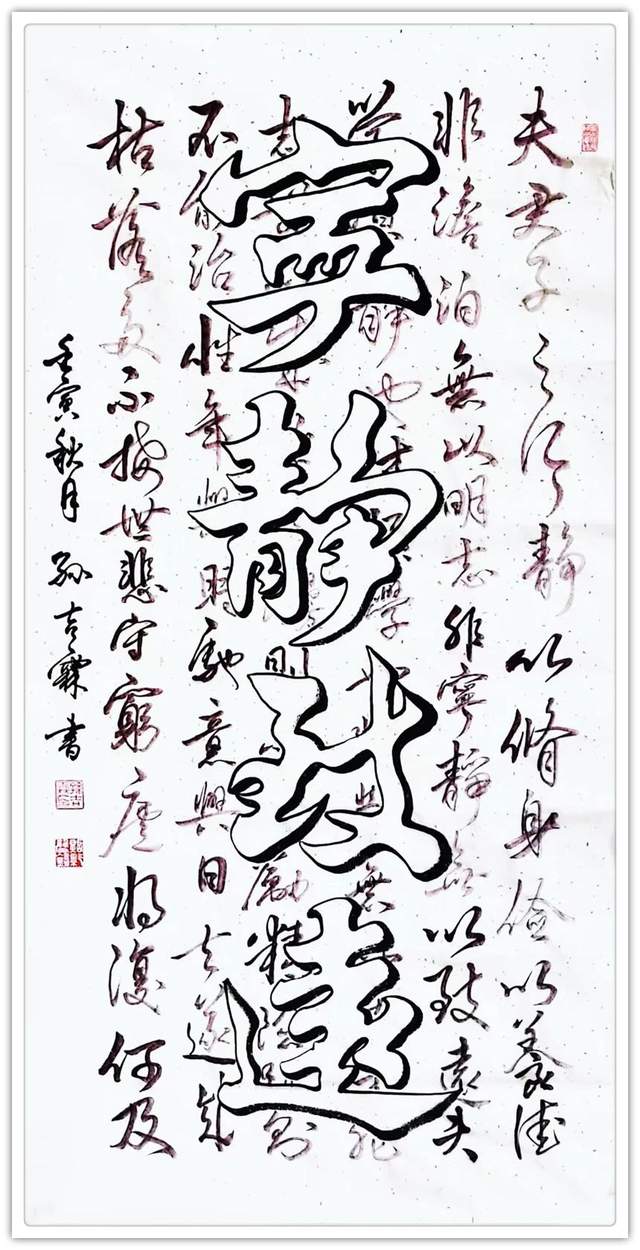 寧靜致遠
夫君子之行靜以脩身儉以養德
非澹泊無以明志非寧靜無以致遠夫
靜也才學非無非
志則勵精險則
不能治性年與時馳意與日去遂成
枯落多不接世悲守窮廬將復何及
壬寅秋月孫吉霖書